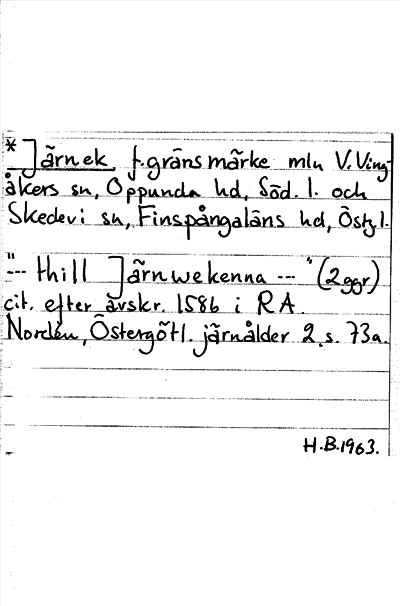 * Järnek f. gränsmärke mln V. Ving-
åkers sn, Oppunda hd, Söd. l. och
Skedevi sn, Finspångaläns hd, Östg. l.
"--- thill Järnwekenna --- " (2 ggr)
cit. efter avskr. 1586 i RA.
Nordén, Östergötl. järnålder 2, s. 73a.
H.B. 1963.